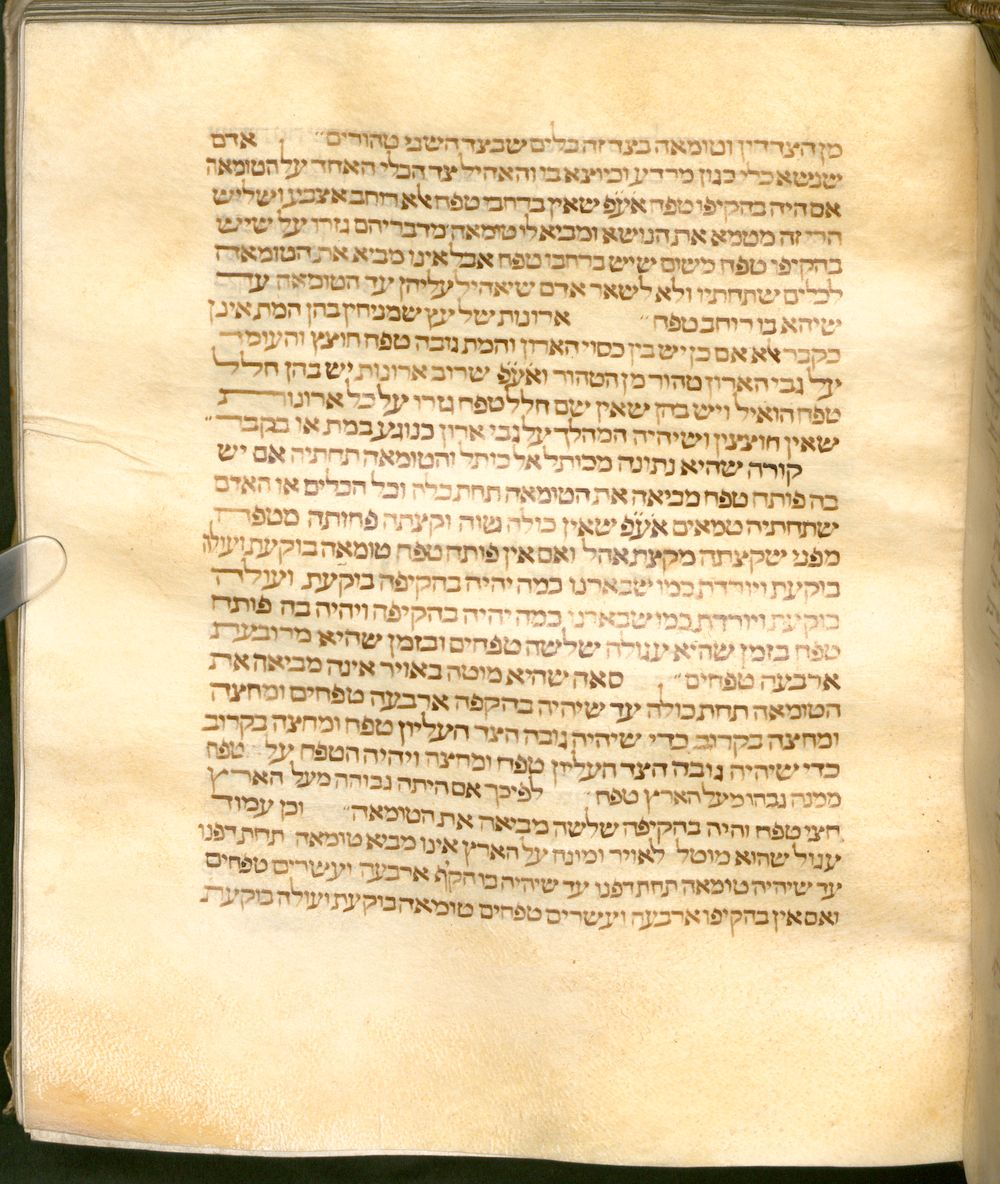 מן הצדדין וטומאה בצד זה כלים שבצד השני טהורים״ אדם
שנשא כלי כגון מרדע וכיוצא בו והאהיל צד הכלי האחד על הטומאה
אם היה בהקיפו טפח אע״פ שאין ברחבו טפח אלא רוחב אצבע ושליש
הרי זה מטמא את הנושא ומביא לו טומאה מדבריהם גזרו על שיש
בהקיפו טפח משום שיש ברחבו טפח אבל אינו מביא את הטומאה
לכלים שתחתיו ולא לשאר אדם שיאהיל עליהן עד הטומאה עד
שיהא בו רוחב טפח״ ארונות של עץ שמניחין בהן המת אינן
כקבר אלא אם כן יש בין כסוי הארון והמת גובה טפח חוצץ והעומד
על גבי הארון טהור מן הטהור ואע״פ שרוב ארונות יש בהן חלל
טפח הואיל ויש בהן שאין שם חלל טפח גזרו על כל ארונות
שאין חוצצין ושיהיה המהלך על גבי ארון כנוגע במת או בקבר״
קורה שהיא נתונה מכותל אל כותל והטומאה תחתיה אם יש
בה פותח טפח מביאה את הטומאה תחת כלה וכל הכלים או האדם
שתחתיה טמאים אע״פ שאין כולה שוה וקצתה פחותה מטפח
מפני שקצתה מקצת אהל ואם אין פותח טפח טומאה בוקעת ועולה
בוקעת ויורדת כמו שבארנו כמה יהיה בהקיפה בוקעת ועולה
בוקעת ויורדת כמו שבארנו כמה יהיה בהקיפה ויהיה בה פותח
טפח בזמן שהיא עגולה שלשה טפחים ובזמן שהיא מרובעת
ארבעה טפחים״ סאה שהיא מוטה באויר אינה מביאה את
הטומאה תחת כולה עד שיהיה בהקפה ארבעה טפחים ומחצה
ומחצה בקרוב כדי שיהיה גובה הצד העליון טפח ומחצה בקרוב
כדי שיהיה גובה הצד העליון טפח ומחצה ויהיה הטפח על טפח
ממנה גבהו מעל הארץ טפח״ לפיכך אם היתה גבוהה מעל הארץ
חצי טפח והיה בהקיפה שלשה מביאה את הטומאה״ וכן עמוד
עגול שהוא מוטל לאויר ומונח על הארץ אינו מביא טומאה תחת דפנו
עד שיהיה טומאה תחת דפנו עד שיהיה בו הקף ארבעה ועשרים טפחים
ואם אין בהקיפו ארבעה ועשרים טפחים טומאה בוקעת ועולה בוקעת